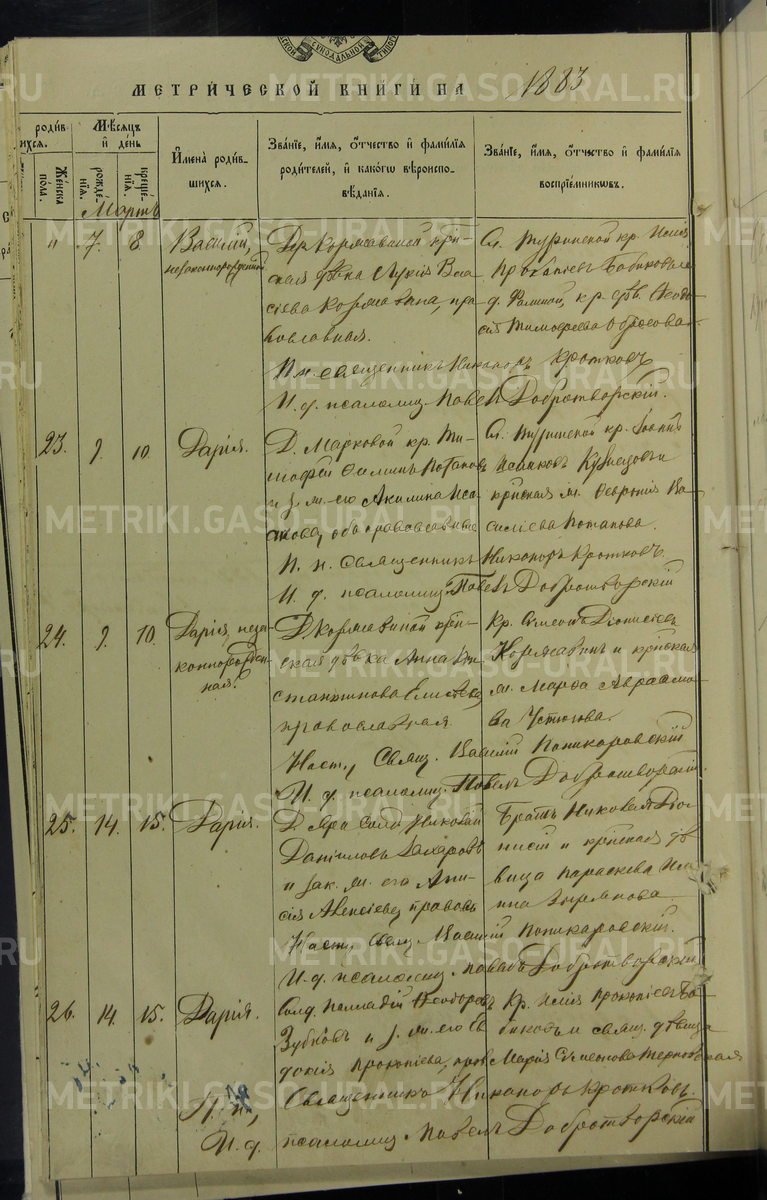 МЕТРИ́ЧЕСКОЙ КНИ́ГИ НА 1883
роди́в-
шихся.
Же́нска
по́ла.
Мѣ́сяцъ
и҆ де́нь
рожде́-
нїѧ.
креще́-
нїѧ.
И҆мена̀ роди́в-
шихся.
Зва́нїе, и҆́мѧ, ѻ҆́тчество и҆ фами́лїѧ
роди́телей, и҆ како́гѡ вѣроиспо-
вѣ́данїѧ.
Зва́нїе, и҆́мѧ, ѻ҆́тчество и҆ фами́лїѧ
воспрїе́мникѡвъ.
Мартъ
" 7. 8. Василій,
незаконнорожденный
Дер. Кормавиной крѣ-
ская дѣвка Лукія Вла-
сіева Кормавина, пра-
вославная.
Сл. Туринской кр. Илія
Прокопіевъ Бабиковъ и
д. Фалиной, кр. дѣв. Ѳеодо-
сія Тимофеева Обросова
П. н. священникъ Никаноръ Кротковъ
И. д. псаломщ. Павелъ Добротворскій.
23. 9. 10. Дарія.
Д. Марковой кр. Ти-
мофей Потаповъ
и з. ж. его Акилина Иса-
акова, оба православные
Сл. Туринской кр. Іоаннъ
Исааковъ Кузнецовъ и
крѣская ж. Февронія Ва-
силіева Потапова.
П. н. Священникъ Никаноръ Кротковъ.
И. д. псаломщ. Павелъ Добротворскій
24. 9. 10. Дарія, неза-
коннорожден-
ная.
Д. Кормавиной крѣ-
ская дѣвка Анна Кон-
стантинова
православная.
Кр. Симеонъ Діонисіевъ
Кормавинъ и крѣская
ж. Марѳа Авраамо-
ва Устюгова.
Наст. Свящ. Василій Поникаровскій
И. д. псаломщ. Павелъ Добротворскій.
25. 14. 15. Дарія.
Д. солд. Николай
Даніиловъ Захаровъ
и зак. ж. его Ани-
сія Алексіева, правос.
Братъ Николая Діо-
нисій и крѣская дѣ-
вица Параскева Иль-
ина
Наст. Свящ. Василій Поникаровскій.
И. д. псаломщ. Павелъ Добротворскій
26. 14. 15. Дарія.
Солд. Палладій Ѳеодоровъ
Зубковъ и з. ж. его Ев-
докія Прокопіева, прав.
Кр. Илія Прокопіевъ Ба-
биковъ и свящ. дѣвица
Марія Симеонова Терновская
П. н. Священникъ Никаноръ Кротковъ.
И. д. псаломщ. Павелъ Добротворскій
METRIKI.GASO-URAL.RU